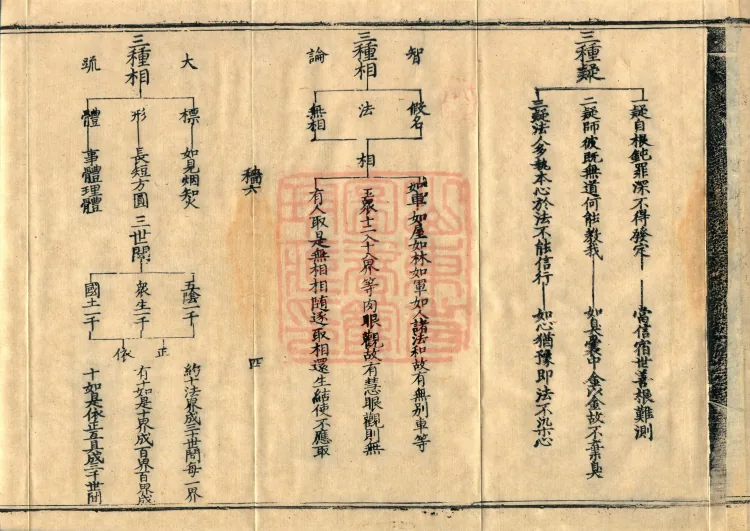 三種疑
一疑自根鈍罪深不得發定——當信宿世善根難測
二疑師彼既無道何能教我——如臭囊中金以金故不棄臭
三疑法人多執本心於法不能信行——如心猶豫即法不染心
智
論
三種相
假名
法
無相
相
如車如屋如林如軍如人諸法和故有無別車等
五衆十二入十八界等肉眼觀故有慧眼觀則無
有人取是無相相隨逐取相還生結使不應取
稽六
四
大
疏
三種相
標
如見烟知火
形
長短方圓
體
事體理體
三世間
五陰一千
衆生一千
國土一千
正
依
約十法界成三十世間每一界
有十如是十界成百界百界成
十如是依正互具成三千世間